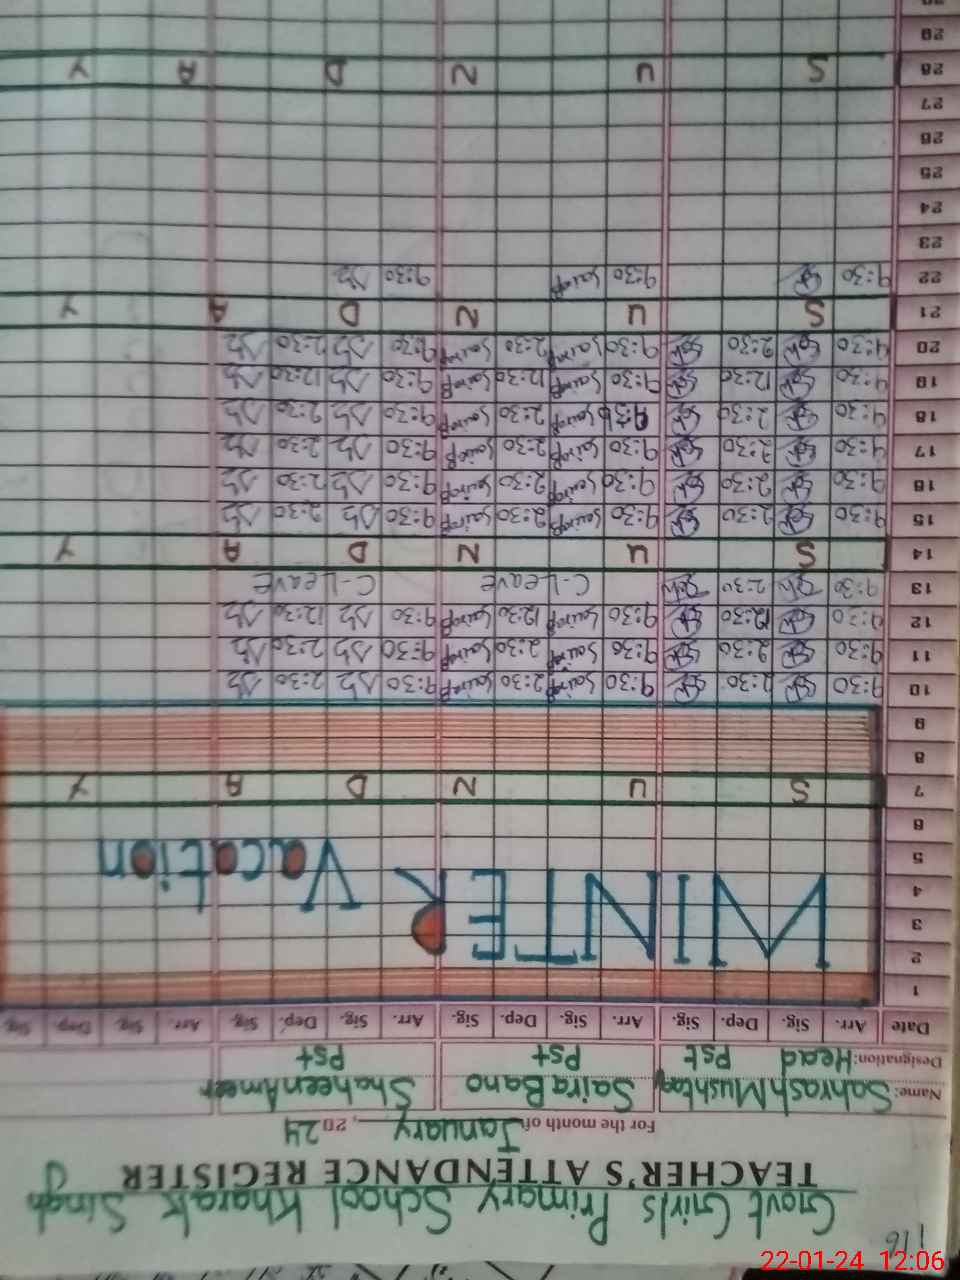 116
Govt Girls Primary School Kharak Singh
TEACHER'S ATTENDANCE REGISTER
For the month of January, 2024
Name: Sahrash Mushtaq Saira Bano Shaheen Ameer
Designation: Head Pst Pst Pst
Date Arr. Sig. Dep. Sig. Arr. Sig. Dep. Sig. Arr. Sig. Dep. Sig. Arr. Sig. Dep. Sig.
1
2
3
4 WINTER Vacation
5
6
7 S U N D A Y
8
9
10 9:30 2:30 9:30 SairaB 2:30 SairaB 9:30 2:30
11 9:30 2:30 9:30 SairaB 2:30 SairaB 9:30 2:30
12 9:30 12:30 9:30 SairaB 12:30 SairaB 9:30 12:30
13 9:30 2:30 C-Leave C-Leave
14 S U N D A Y
15 9:30 2:30 9:30 SairaB 2:30 SairaB 9:30 2:30
16 9:30 2:30 9:30 SairaB 2:30 SairaB 9:30 2:30
17 9:30 2:30 9:30 SairaB 2:30 SairaB 9:30 2:30
18 9:30 2:30 9:30 SairaB 2:30 SairaB 9:30 2:30
19 9:30 12:30 9:30 SairaB 12:30 SairaB 9:30 12:30
20 9:30 2:30 9:30 SairaB 2:30 SairaB 9:30 2:30
21 S U N D A Y
22 9:30 9:30 SairaB 9:30
23
24
25
26
27
28 S U N D A Y
29
22-01-24 12:06